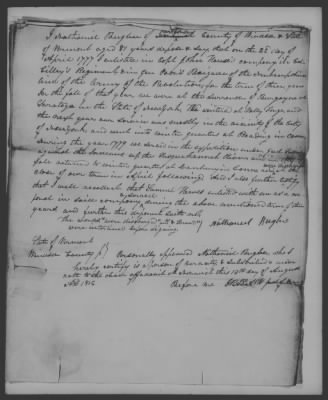 I Nathaniel Hughes of County of Windsor & State
of Vermont aged 81 years depose & say that on the 22 day of
April 1777 I enlisted in Capt John House's company in Col
Cilley's Regiment & in Gen Poor's Brigade of the Newhampshire
Line of the Army of the Revolution, for the term of three years
In the fall of that year we were at the surrender of Burgoyne at
Saratoga in the State of NewYork. We wintered at Valley Forge and
the next year our service was mostly in the vicinity of the City
of NewYork and went into winter quarters at Reading in Conn
during the year 1779 we served in the expedition under Genl Sullivan
against the Indians up the Susquehannah River and in the
fall returned to winter quarters at Danbury Conn until the
close of our term in April following. And I also further testify
that I well recollect that Samuel enlisted with me as a
in said company during the above mentioned term of three
years and further this deponent saith not.
the words were interlined before signing
Nathaniel Hughs
State of Vermont
Windsor County Ss Personally appeared Nathaniel Hughs who I
hereby certify is a person of veracity & subscribed & made
oath to the above affidavit at Norwich this 13th day of August
AD. 1836
Before me